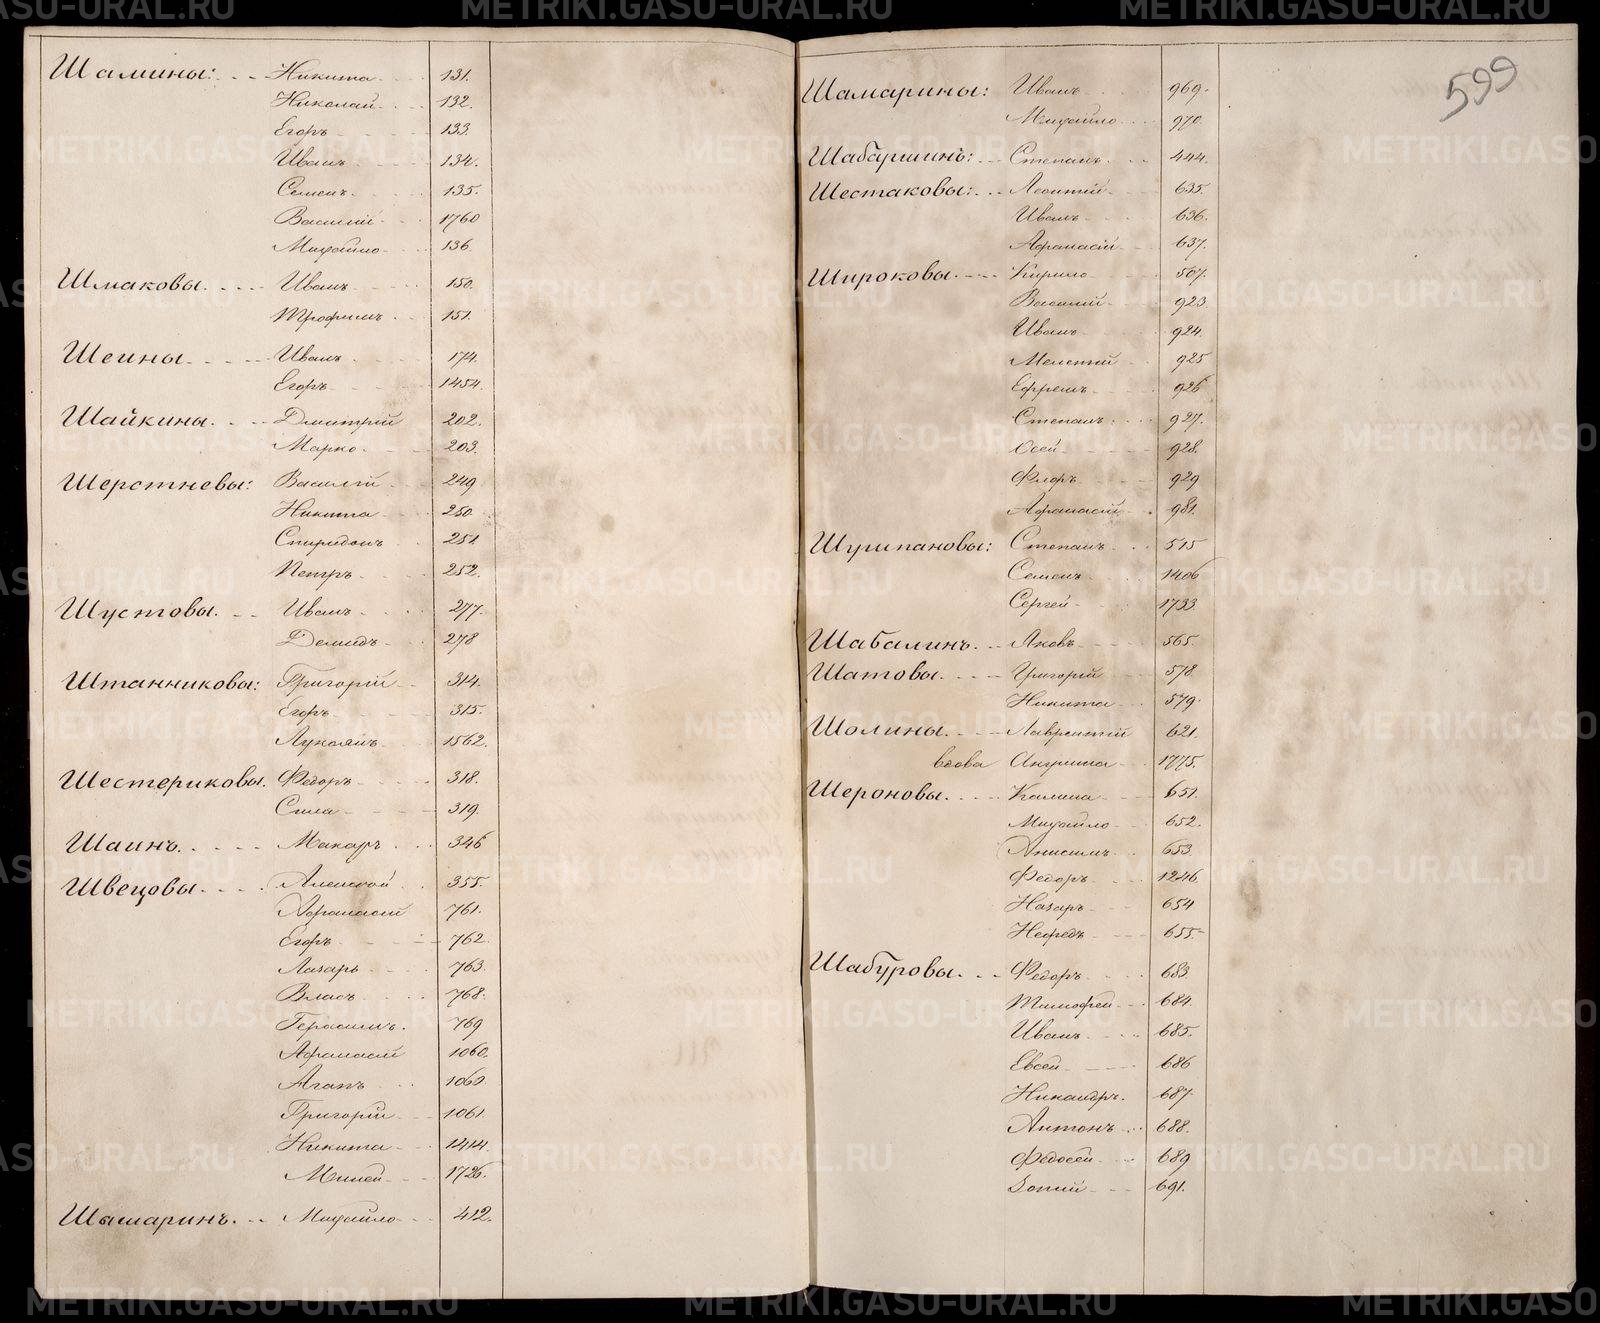 Шамины: Никита 131.
Николай 132.
Егоръ 133.
Иванъ 134.
Семенъ 135.
Василій 1760
Михайло 136.
Шмаковы. Иванъ 150.
Трофимъ 151.
Шеины Иванъ 174.
Егоръ 1454.
Шайкины. Дмитрій 202.
Марко 203.
Шерстневы: Василій 249
Никита 250
Спиридонъ 251
Петръ 252.
Шустовы. Иванъ 277.
Демидъ 278
Штанниковы: Григорій 314.
Егоръ 315.
Лукоянъ 1562.
Шестериковы. Федоръ 318.
Сила 319.
Шаинъ. Макаръ 346
Швецовы. Алексей 355.
Афанасій 761.
Егоръ 762
Лазарь 763.
Власъ 768.
Герасимъ. 769
Афанасій 1060.
Агапъ 1060.
Григорій 1061
Никита 1414.
Миней 1726.
Шамаринъ. Михайло 412.
599
Шамарины: Иванъ 969.
Михайло 970.
Шабаршинъ: Степанъ 444.
Шестаковы: Леонтій 635.
Иванъ 636.
Афанасій 637.
Широковы. Кирило 507.
Василій 923
Иванъ 924.
Мелетій 925
Ефремъ 926
Степанъ 927.
Осей 928.
Флоръ 929
Афанасій 981.
Шурипановы: Степанъ 515
Семенъ 1406
Сергей 1733
Шабалинъ. Яковъ 565.
Шатовы. Григорій 578
Никита 579.
Шолины. Лаврентій 621.
вдова 1775.
Шероновы. Калина 651.
Михайло 652.
Анисимъ 653.
Федоръ 1246.
Назаръ 654
Нефедъ 655.
Шабуровы. Федоръ 683
Тимофей 684.
Иванъ 685.
Евсей 686
Никандръ. 687.
Антонъ 688.
Федосей 689
691.
METRIKI.GASO-URAL.RU